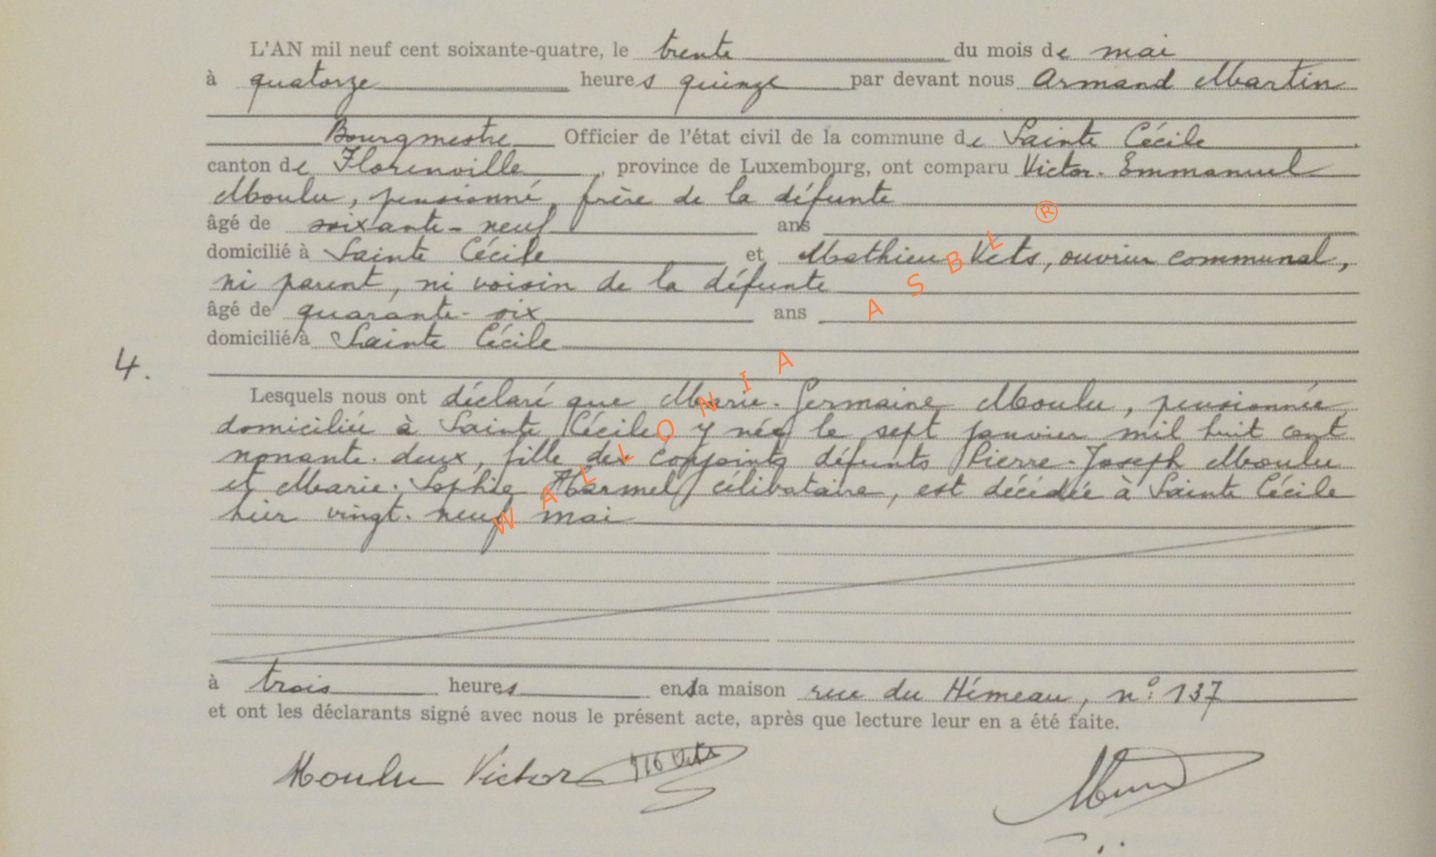 L'AN mil neuf cent soixante-quatre, le trente du mois de mai
à quatorze heures quinze par devant nous Armand Martin
Bourgmestre Officier de l'état civil de la commune de Sainte Cécile
canton de Florenville, province de Luxembourg, ont comparu Victor-Emmanuel
Moulu, pensionné, frère de la défunte
âgé de soixante-neuf ans
domicilié à Sainte Cécile et Mathieu Vets, ouvrier communal,
ni parent, ni voisin de la défunte
âgé de quarante-six ans
domicilié à Sainte Cécile
4.
Lesquels nous ont déclaré que Marie-Germaine Moulu, pensionnée,
domiciliée à Sainte Cécile y née le sept janvier mil huit cent
nonante-deux, fille des conjoints défunts Pierre-Joseph Moulu
et Marie-Sophie Harmel, célibataire, est décédée à Sainte Cécile
hier vingt-neuf mai
à trois heures en sa maison rue du Hémeau, n° 137
et ont les déclarants signé avec nous le présent acte, après que lecture leur en a été faite.
Moulu Victor
WALLONIA ASBL ®